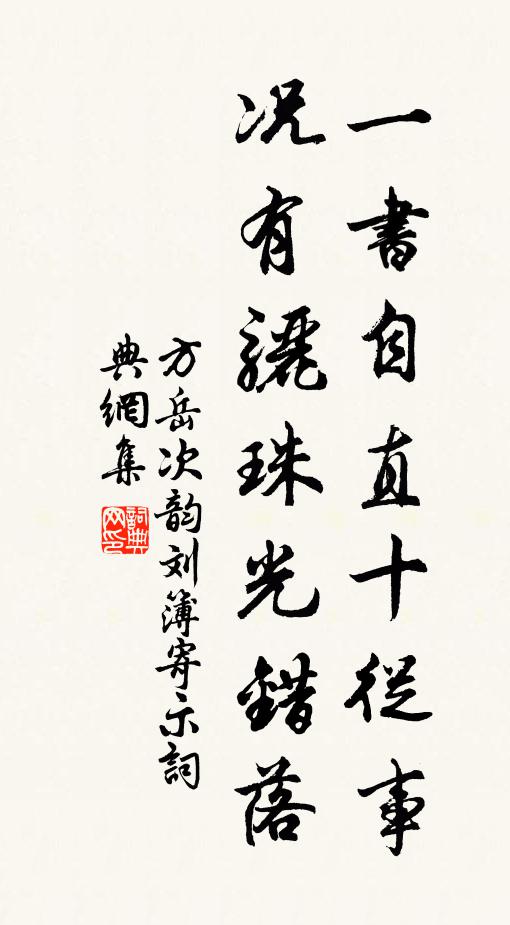 一書自直十從事
况有驪珠光錯落
方岳次韵刘簿寄示詞
典網集
詞典網印